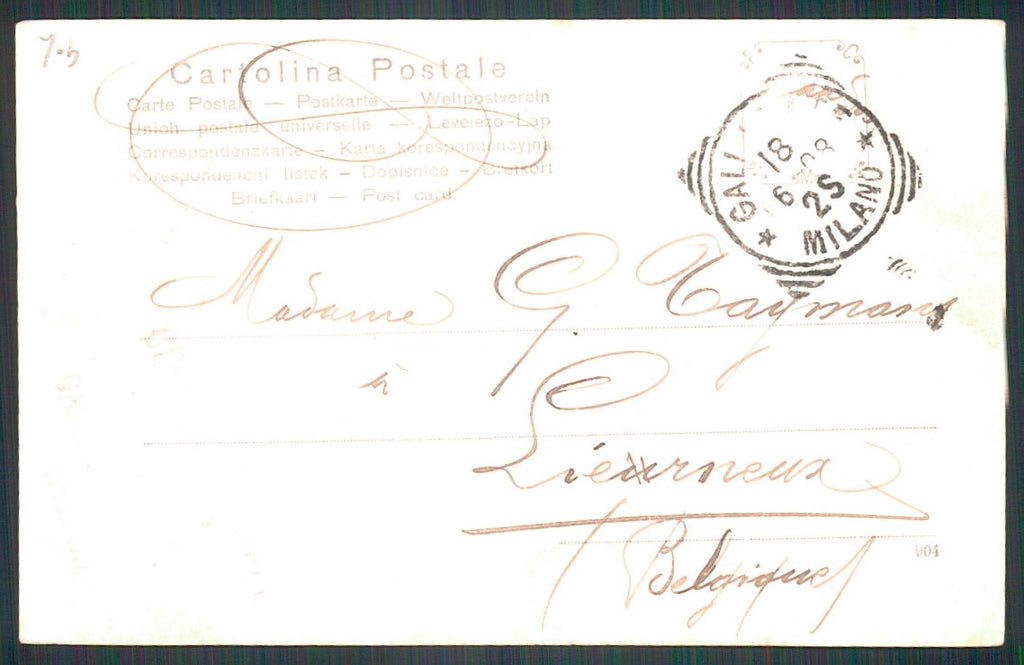 7-5
Cartolina Postale
Carte Postale — Postkarte — Weltpostverein
Union postale universelle — Levelezo-Lap
Correspondenzkarte — Karta korespondencyjna
Korespondencni listek — Dopisnice — Brefkort
Briefkaart — Post card
GALL
18
6
08
2S
MILANO
Madame G. Taymans
à
Lierneux
Belgique
904